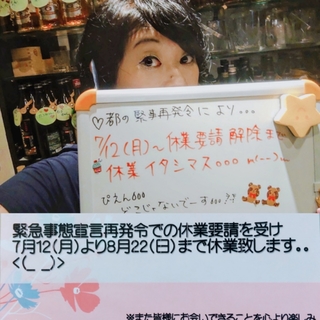 ♡都の緊事再発令により。。。
7/12(月)〜休業要請解除まで
休業イタシマスooo m(--)m
ぴえん6oo
どこじゃないでーす???
緊急事態宣言再発令での休業要請を受け
7月12(月)より8月22(日)まで休業致します。。
<(_ _)>
※また皆様にお会いできることを心より楽しみ